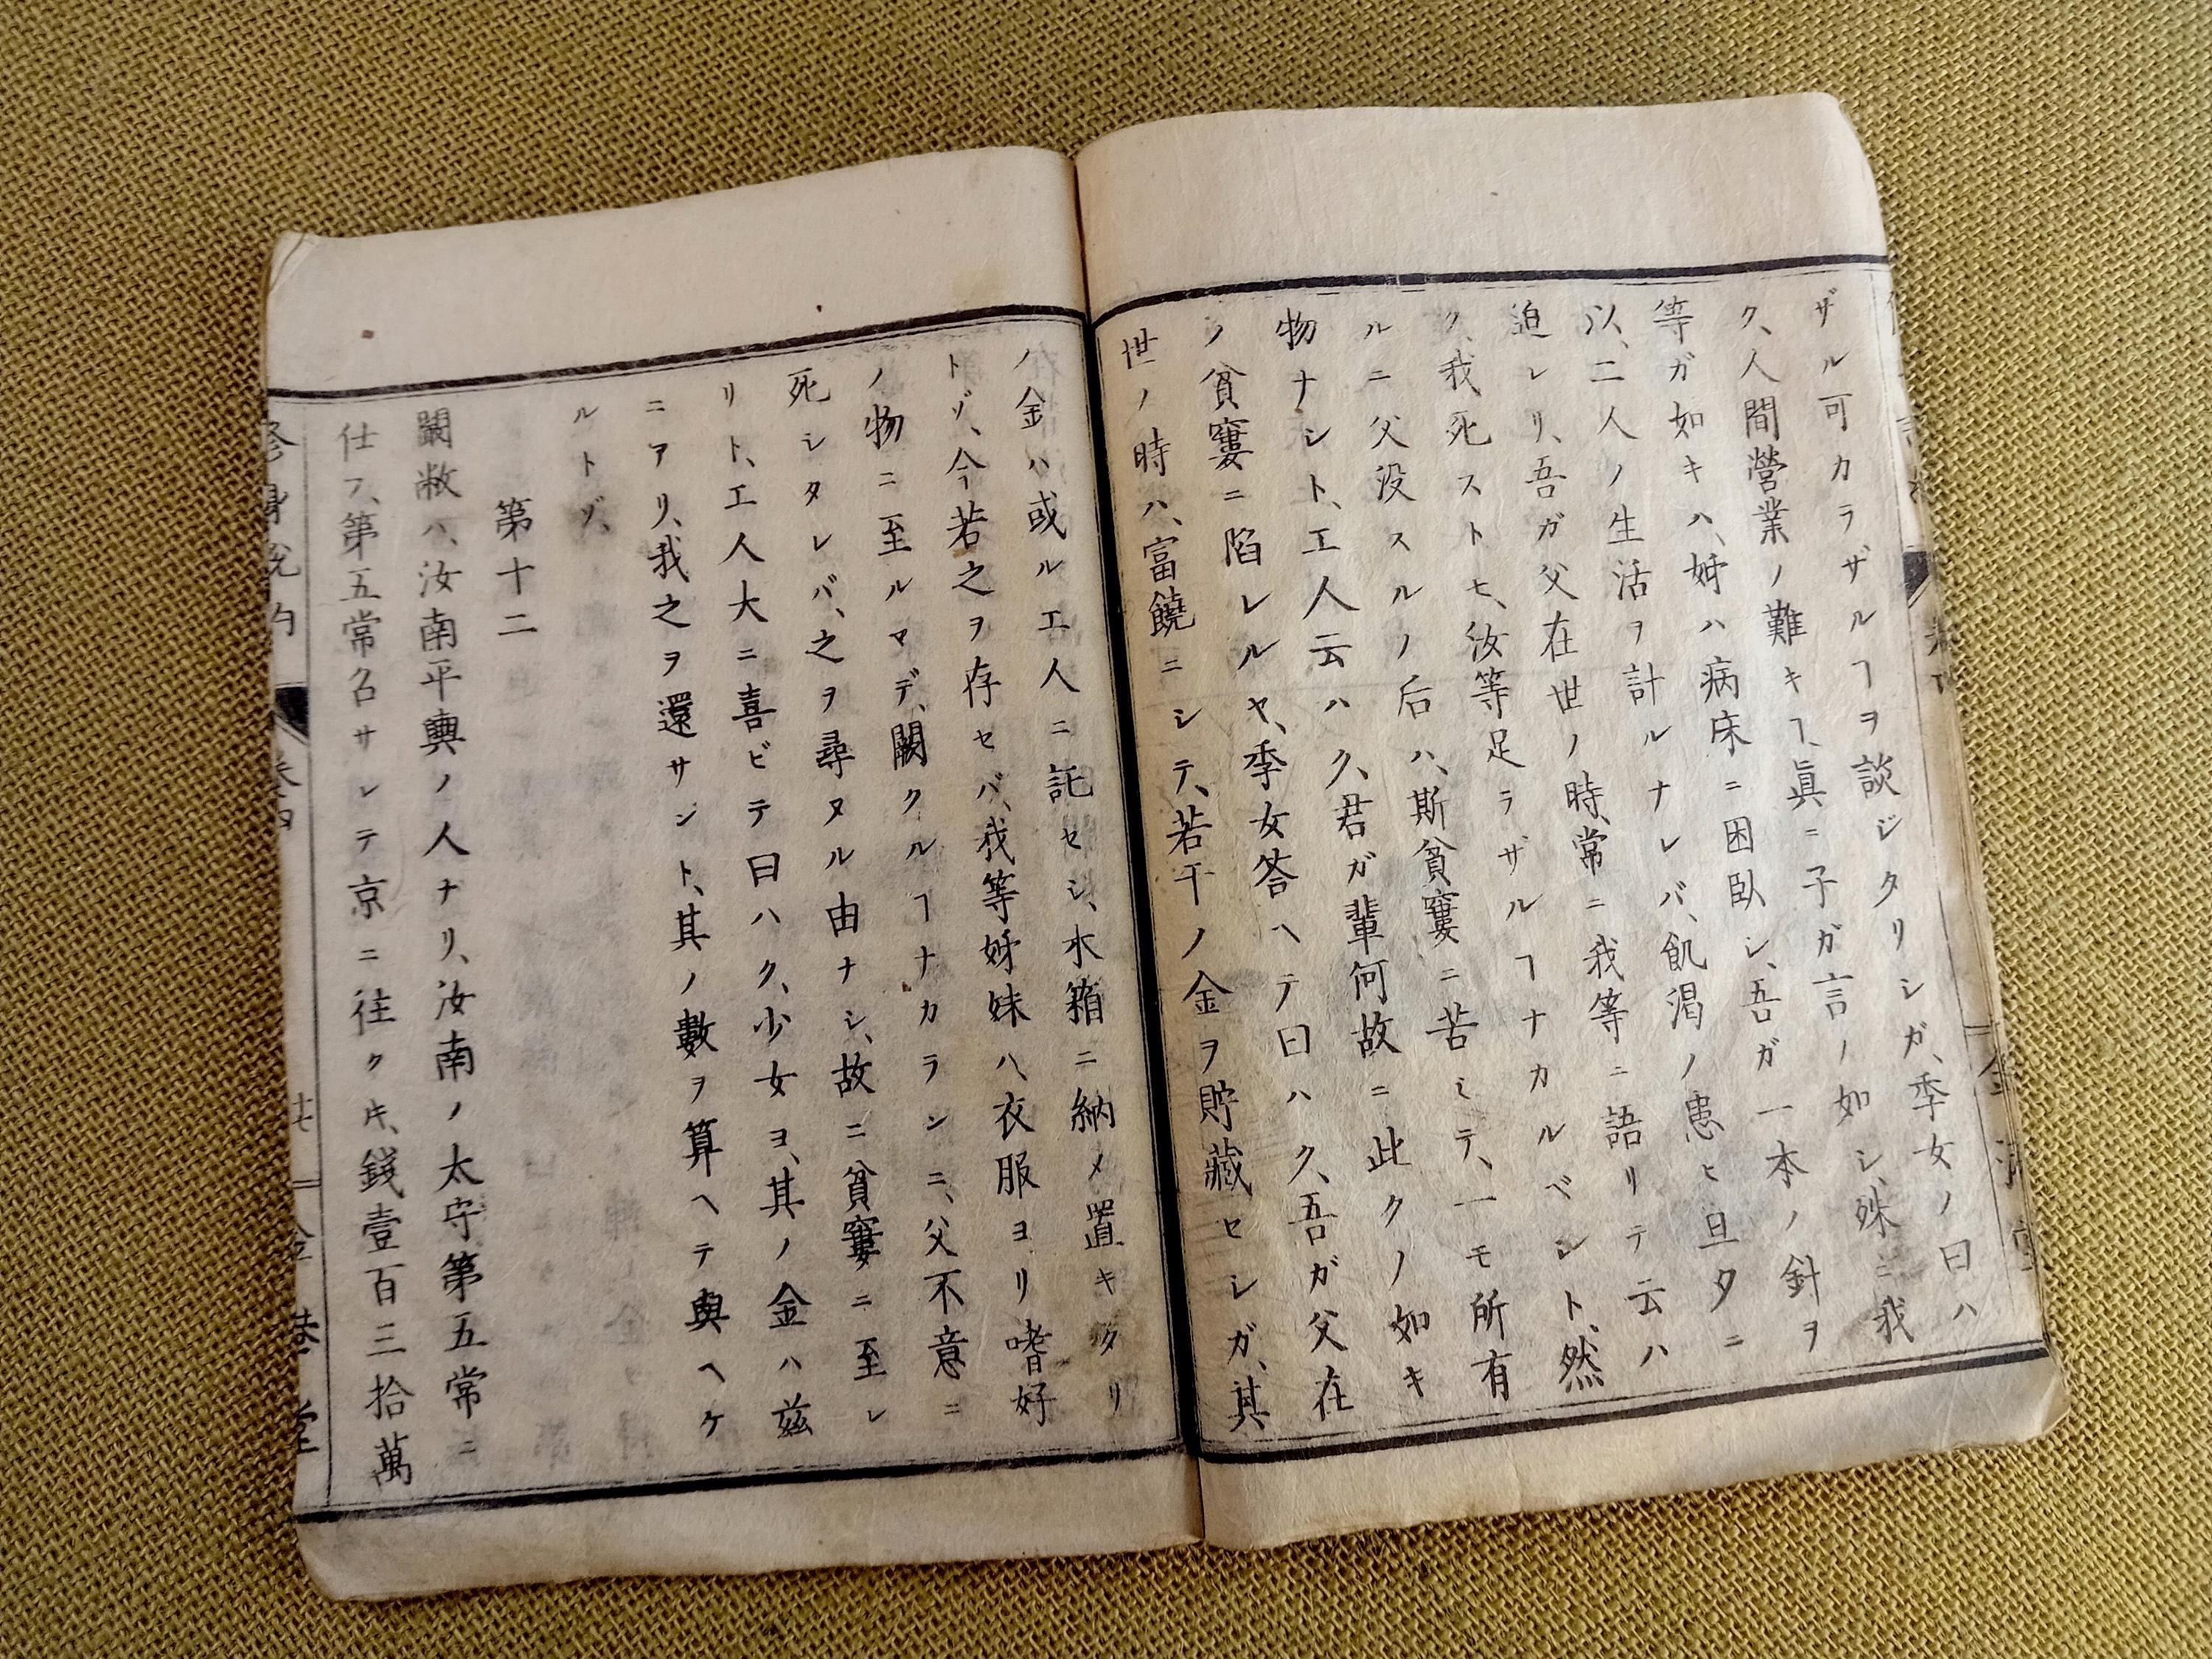 ザル可カラザルヿヲ談ジタリシガ、季女ノ曰ハ
ク、人間營業ノ難キヿ、眞ニ子ガ言ノ如シ、殊ニ我
等ガ如キハ、姊ハ病床ニ困臥シ、吾ガ一本ノ針ヲ
以、二人ノ生活ヲ計ルナレバ、飢渇ノ患ヒ旦夕ニ
迫レリ、吾ガ父在世ノ時、常ニ我等ニ語リテ云ハ
ク、我死ストモ、汝等足ラザルヿナカルベシト、然
ルニ父没スルノ后ハ、斯貧窶ニ苦ミテ、一モ所有
物ナシト、工人云ハク、君ガ輩何故ニ此クノ如キ
ノ貧窶ニ陷レルヤ、季女答ヘテ曰ハク、吾ガ父在
世ノ時ハ、富饒ニシテ、若干ノ金ヲ貯藏セシガ、其
ノ金ハ或ル工人ニ託セシ、木箱ニ納メ置キタリ
トゾ、今若之ヲ存セバ、我等姊妹ハ、衣服ヨリ嗜好
ノ物ニ至ルマデ、闕クルヿナカランニ、父不意ニ
死シタレバ、之ヲ尋ヌル由ナシ、故ニ貧窶ニ至レ
リト、工人大ニ喜ビテ曰ハク、少女ヨ、其ノ金ハ玆
ニアリ、我之ヲ還サント、其ノ數ヲ算ヘテ與ヘケ
ルトゾ、
第十二
闞敞ハ、汝南平輿ノ人ナリ、汝南ノ太守第五常ニ
仕フ、第五常召サレテ京ニ往クキ、錢壹百三拾萬
修身説約 卷四 十七 金港堂